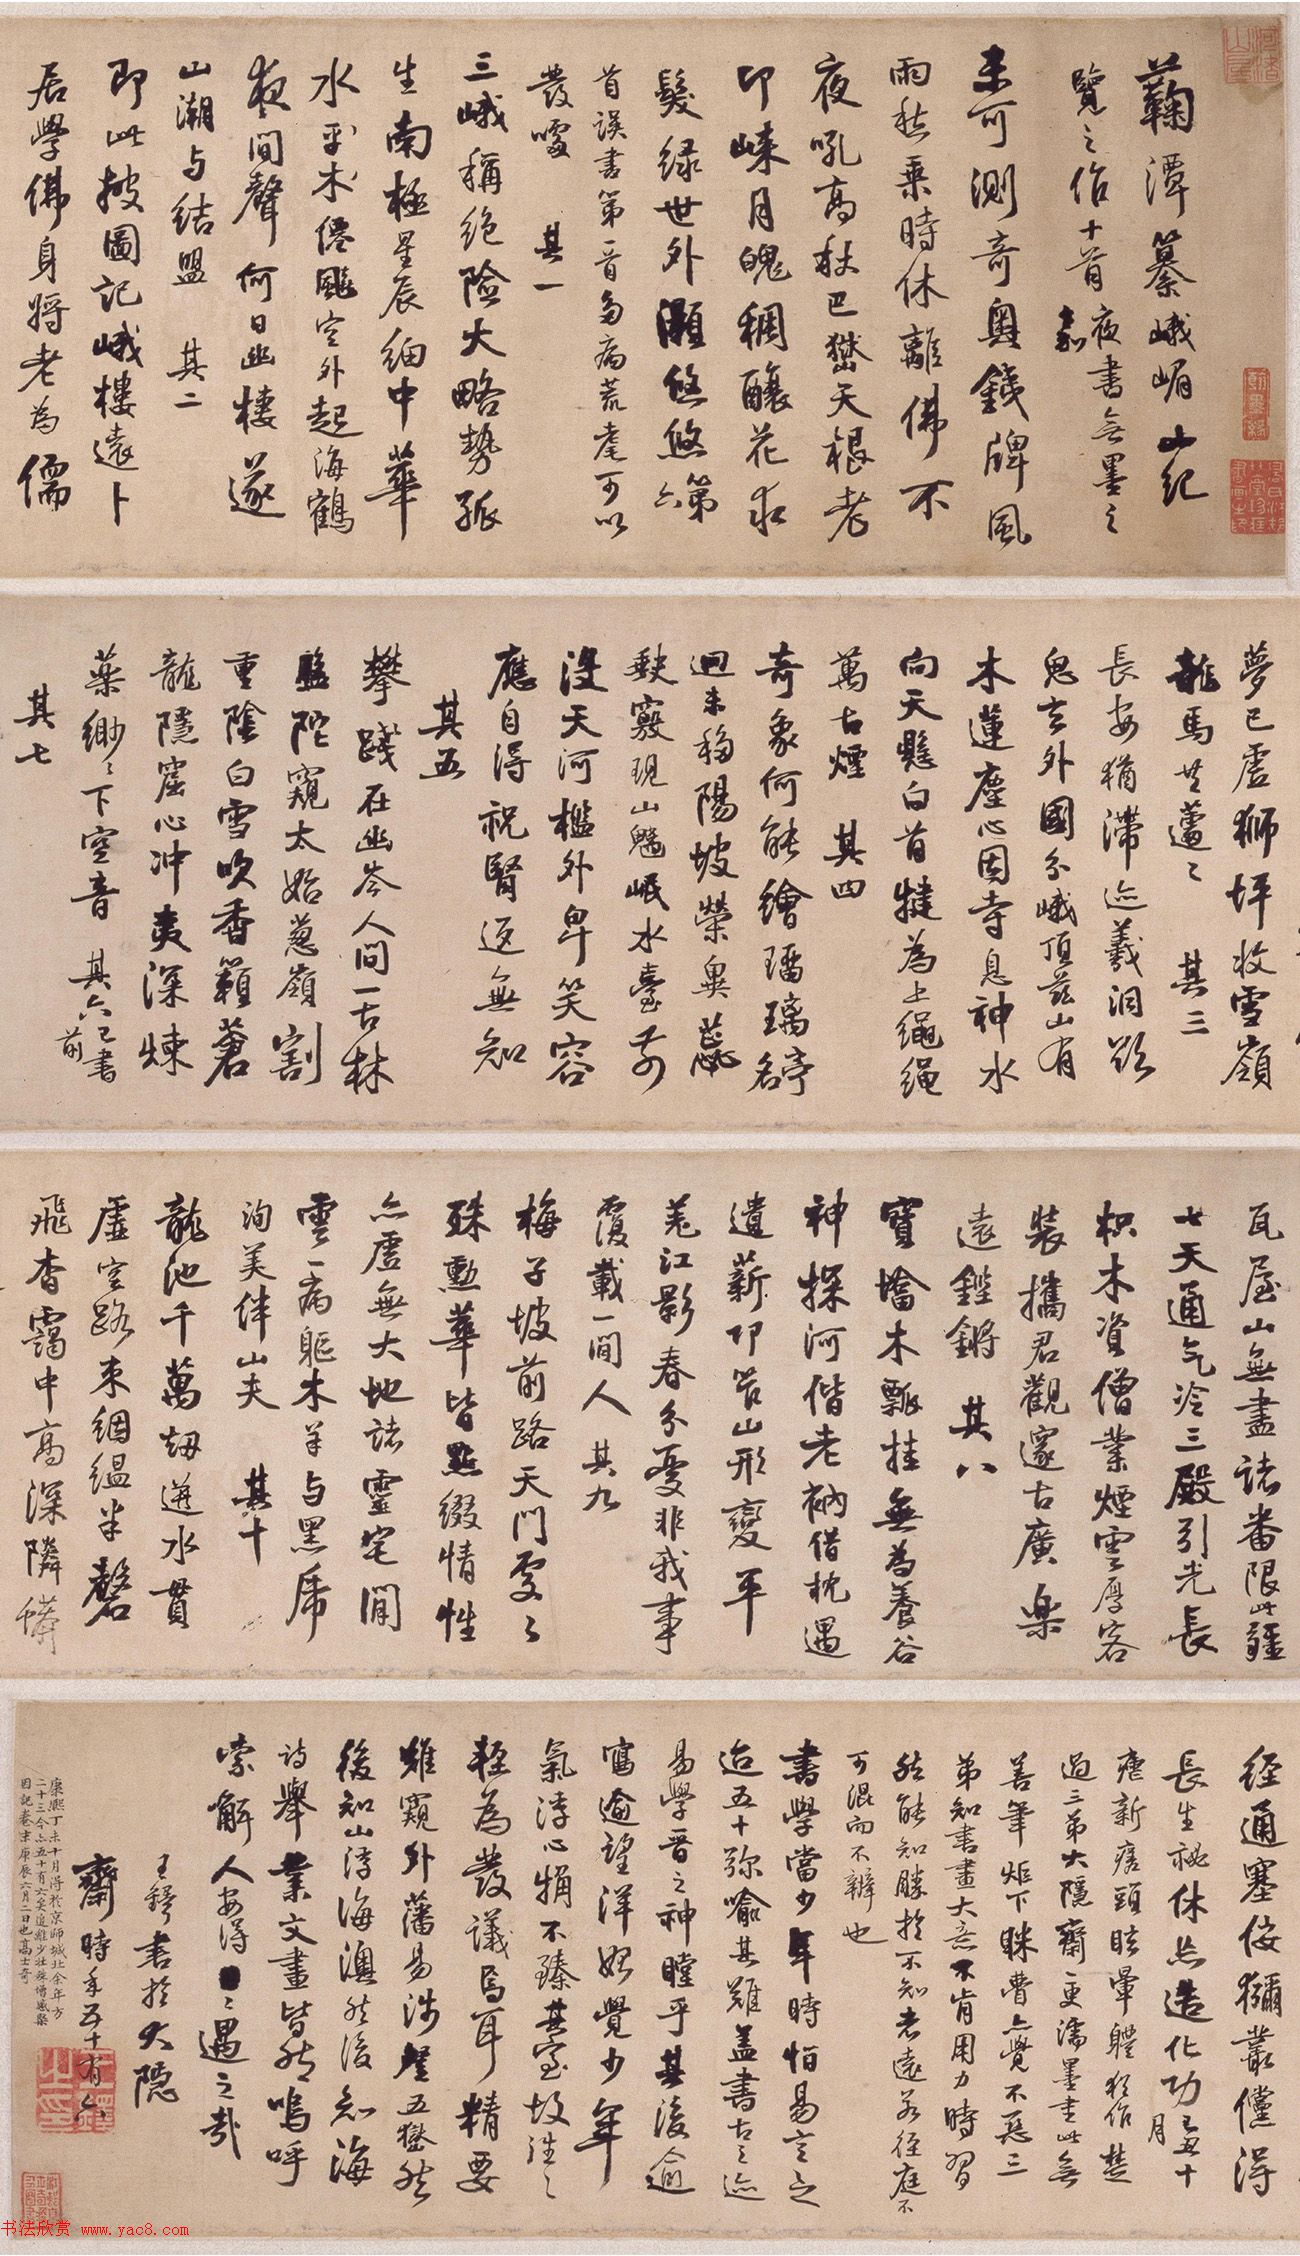 蘜潭纂峨嵋山紀
覽之作十首夜書無墨之
未可測奇奧錢牌風
雨愁乘時休離佛不
夜吼高秋巴㭰天根老
叩峽月魄稠釀花求
髮綠世外灝悠悠第六
首誤書第一首多病荒耄可以
發噱 其一
三峨稱絕險大略勢孤
生南極星辰細中華
水平木僊颸空外起海鶴
夜間聲何日幽棲遂
山潮与結盟 其二
即此披圖記峨樓遠卜
居學佛身將老為儒
夢已虛獅坪收雪嶺
龍馬共蘧〻 其三
長安猶滯迹羲洞欲
鬼玄外國分峨頂茲山有
木蓮塵心因寺息神水
向天懸白首犍為上繩繩
萬古煙 其四
奇象何能繪璠璃名亭
迴未移陽坡榮奧蕊
魅竅現山魑岷水臺前
沒天河檻外卑笑容
應自得祝腎返無知
其五
攀踐在幽岑人間一古林
盤陀窺太始蔥嶺割
重陰白雪吹香籟蒼
龍隱窟心沖夷深煉
藥緲〻下空音 其六已書前
其七
瓦屋山無盡諸番限此疆
七天通气冷三殿引光長
枳木資僧業煙雲厚客
裝攜君觀邃古廣樂
遠鏗鏘 其八
寶墖木瓢挂無為養谷
神探河偕老衲借枕遇
遺薪叩筦山形變平
羌江影春分憂非我事
覆載一閒人 其九
梅子坡前路天門處〻
殊勳華皆點綴情性
亦虛無大地諸靈宅閒
雲一病軀木羊与黑虎
洵美伴山夫 其十
龍池千萬劫遊水貫
虛空路束絪縕半磬
飛杳靄中高深隣蟒
經通塞佞獼叢儻得
長生祕休亦造化功己丑十月
瘧新痊頭眩暈軆猶作楚
過三弟大隱齋更濡墨書此無
善筆炬下眯瞢亦覺不惡三
弟知書畫大意不肯用力時習
然能知勝於不知者遠若徑庭不
可混而不辨也
書學當少年時怕易言之
迨五十弥喻其難蓋書古之迹
易學晉之神瞠乎其後逾
寫逾望洋始覺少年
氣浮心猾不臻其室故往〻
輕為發議焉耳精要
雖窺外藩易涉登五嶽然
後知山浮海澳然後知海
詩舉業文畫皆然嗚呼
索解人安得〻遇之哉
王鐸書於大隱
齋時年五十有六
康熙丁未十月得於京師城北余年方
二十三今五十有六矣追維少壯殊傷感槩
因記卷末庚辰六月二日也高士奇
书法欣赏 www.yac8.com